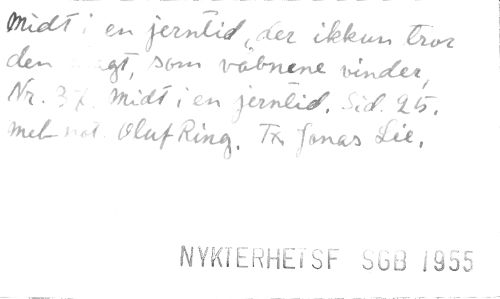 Midt i en jerntid, der ikkun tror
den magt, som våbnene vinder,
Nr. 37. Midt i en jerntid. Sid. 25.
mel. not. Oluf Ring. Tx Jonas Lie.
NYKTERHETSF SGB 1955